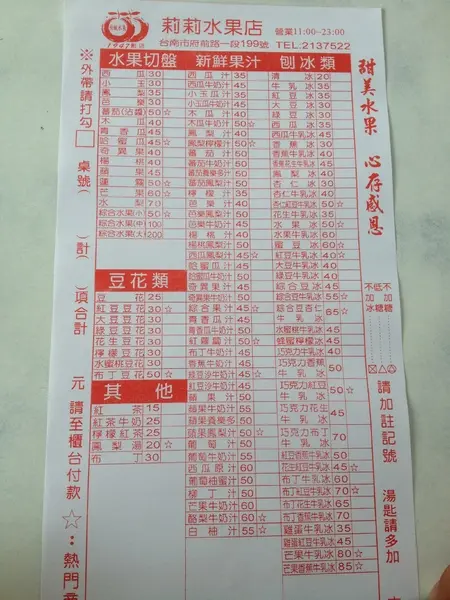 莉莉水果店 營業11:00~23:00
1947創店
台南市府前路一段199號 TEL.2137522
※外帶請打勾
桌號( )計( )項合計
元 請至櫃台付款 ☆:熱門
甜美水果 心存感恩
不加冰
低加糖
不加糖
請加註記號
湯匙請多加
水果切盤
西瓜 30
小玉 30
鳳梨 35
芭樂 30
番茄(沾醬) 50☆
木瓜 40
青香瓜 45
哈蜜瓜 45☆
奇異果 40
楊桃 40
蘋果 45
蓮霧 50☆
芒果 60☆
水梨 70
綜合水果(小) 50☆
綜合水果(中) 100
綜合水果(大) 200
豆花類
豆花 25
紅豆豆花 30☆
大豆豆花 30
綠豆豆花 30
花生豆花 30
檸檬豆花 30
水蜜桃豆花 30
布丁豆花 50☆
其他
紅茶 15
紅茶牛奶 25
檸檬紅茶 25
鳳梨茶 20☆
布丁 30
新鮮果汁
西瓜汁 35
西瓜牛奶汁 45
小玉瓜汁 35
小玉瓜牛奶汁 45
木瓜汁 40
木瓜牛奶汁 50☆
鳳梨汁 40
鳳梨檸檬汁 50☆
番茄汁 50
番茄牛奶汁 50
番茄養樂多汁 50
番茄鳳梨汁 50
檸檬汁 35
芭樂汁 40
芭樂鳳梨汁 50
芭樂牛奶汁 50
楊桃汁 40
楊桃鳳梨汁 50
西瓜鳳梨汁 45☆
哈蜜瓜汁 45
哈蜜瓜牛奶汁 50
奇異果汁 45
奇異果牛奶汁 50
綜合果汁 40☆
青香瓜汁 45
青香瓜牛奶汁 50
紅蘿蔔汁 50☆
布丁牛奶汁 45
香蕉牛奶汁 45
綜合牛奶汁 45☆
紅豆沙牛奶汁 50
蘋果汁 50
蘋果牛奶汁 55
蘋果養樂多 55
蘋果鳳梨汁 50☆
葡萄汁 50
葡萄牛奶汁 55
西瓜原汁 60
葡萄柚蜜汁 50
柳丁汁 50
芒果牛奶汁 60
酪梨牛奶汁 60☆
白柚汁 55☆
刨冰類
清冰 20
牛乳冰 35
紅豆冰 30
大豆冰 30
綠豆冰 30
西瓜冰 45
香蕉冰 30
香蕉牛乳冰 40
鳳梨冰 40
杏仁冰 30
杏仁牛乳冰 40
花生牛乳冰 35
水果冰 50☆
水果牛乳冰 60
蜜豆冰 60☆
紅豆牛乳冰 40☆
大豆牛乳冰 40
綠豆牛乳冰 40
綜合豆冰 45☆
綜合豆牛乳冰 55☆
綜合豆杏仁牛乳冰 65☆
水蜜桃牛乳冰 50
蜂蜜檸檬冰 45
巧克力牛乳冰 40
巧克力香蕉牛乳冰 50
巧克力紅豆牛乳冰 50
巧克力花生牛乳冰 45
巧克力布丁牛乳冰 70
紅豆香蕉牛乳冰 50
花生紅豆牛乳冰 45☆
布丁牛乳冰 60
布丁紅豆牛乳冰 70☆
布丁花生牛乳冰 65
布丁香蕉牛乳冰 70
雞蛋牛乳冰 45
雞蛋紅豆牛乳冰 50
芒果牛乳冰 80☆
芒果香蕉牛乳冰 85☆